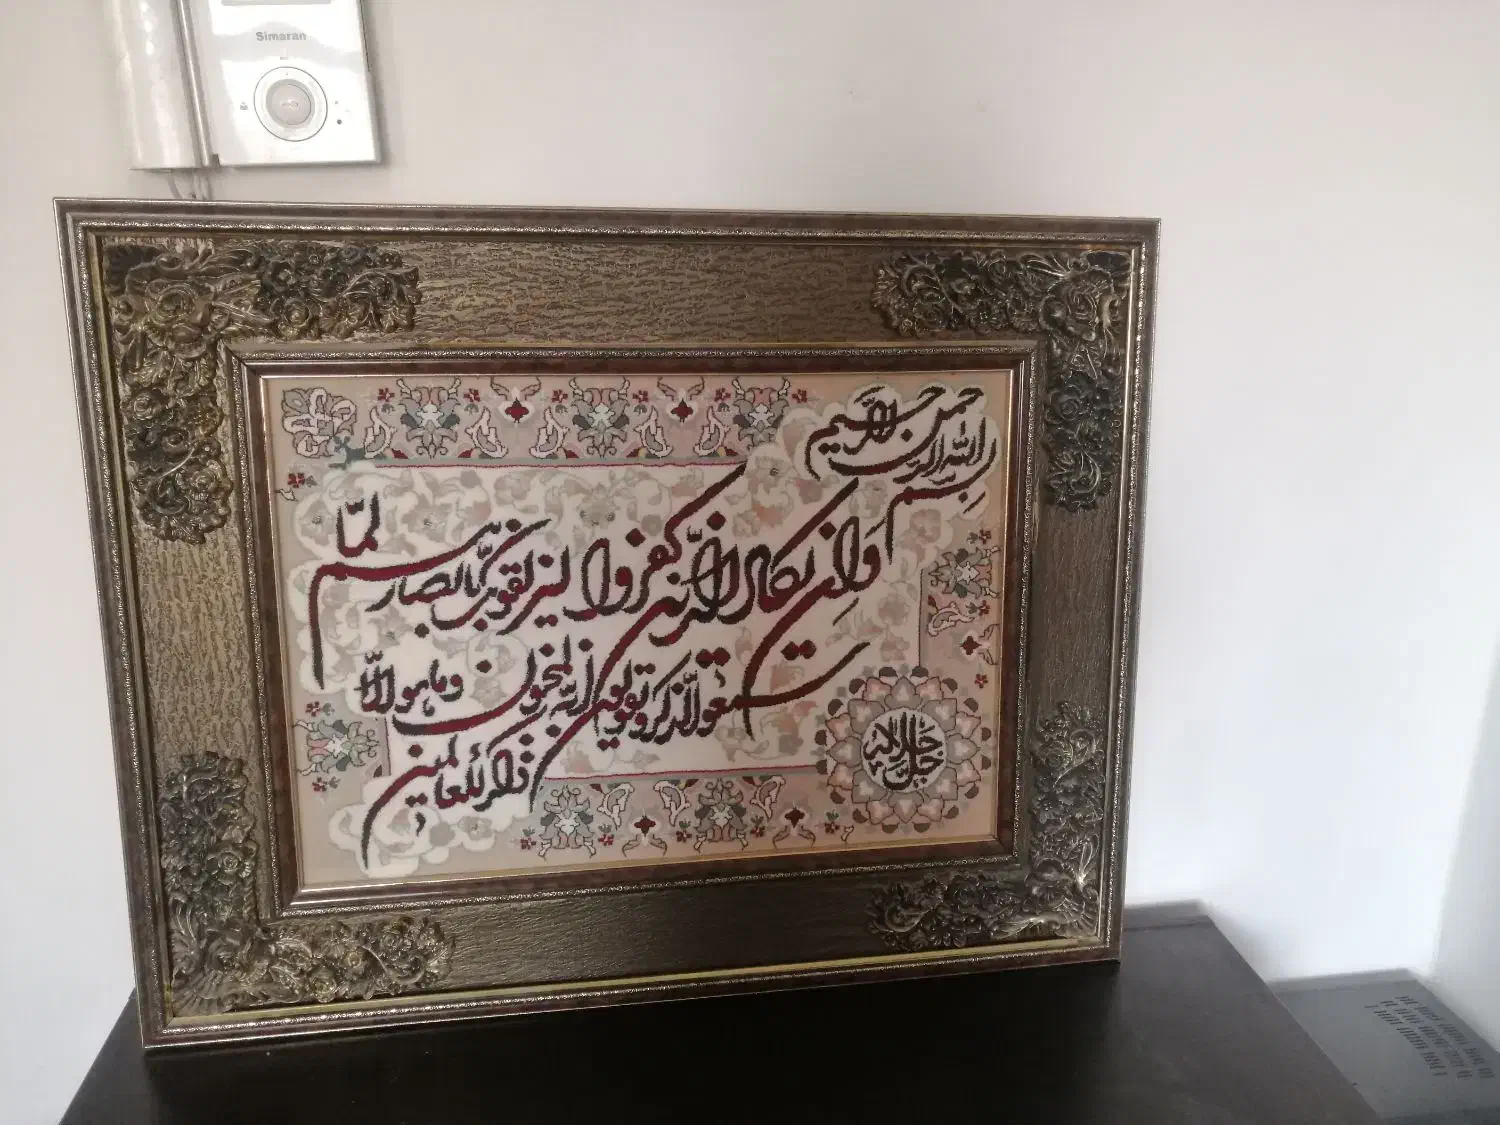 Simaran
بسم الله الرحمن الرحیم
وَاِن یکاد الذّین کفروا لیزلقونک بابصارهم لمّا
سمعوا الذّکر و یقولون انّه لمجنون وما هو الّا
ذکر للعالمین
جل جلاله